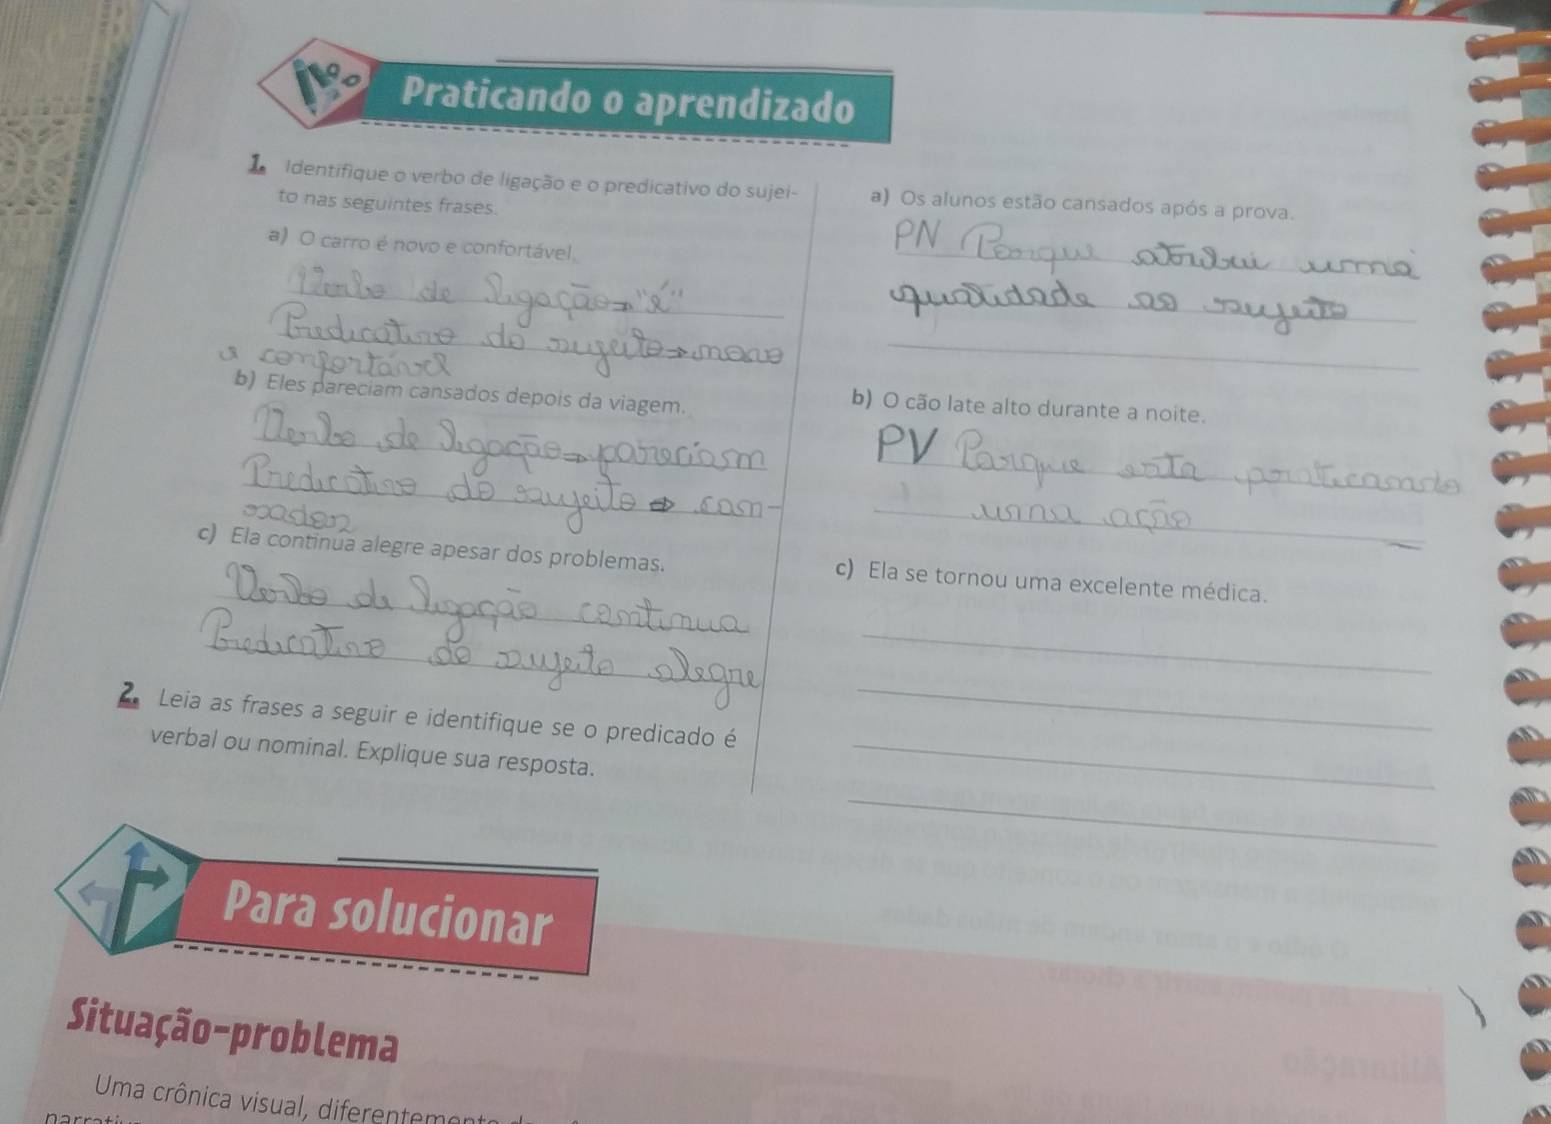 Praticando o aprendizado
1. Identifique o verbo de ligação e o predicativo do sujei-
to nas seguintes frases.
a) O carro é novo e confortável.
Verbo de ligação→"é"
Predicativo do sujeito→novo
e confortável
b) Eles pareciam cansados depois da viagem.
Verbo de ligação→pareciam
Predicativo do sujeito→can-
sados
c) Ela continua alegre apesar dos problemas.
Verbo de ligação continua
Predicativo do sujeito alegre
2. Leia as frases a seguir e identifique se o predicado é
verbal ou nominal. Explique sua resposta.
a) Os alunos estão cansados após a prova.
PN Porque atribui uma
qualidade ao sujeito
b) O cão late alto durante a noite.
PV Porque esta praticando
uma ação
c) Ela se tornou uma excelente médica.
Para solucionar
Situação-problema
Uma crônica visual, diferentemente